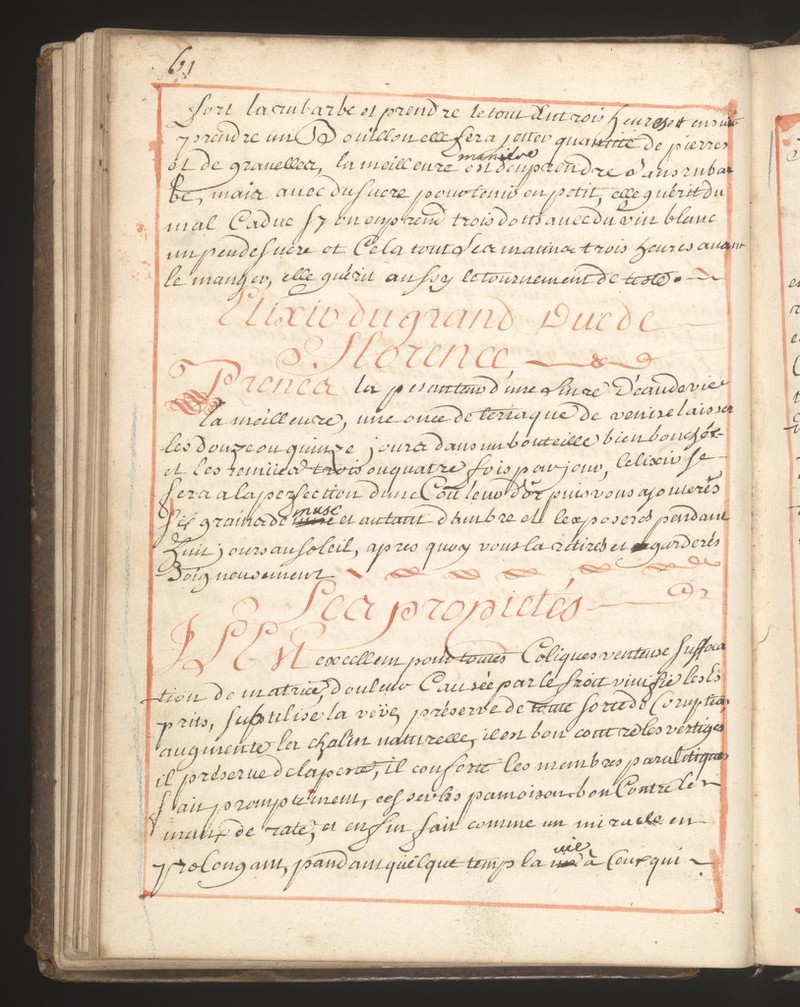 61
fort la rubarbe et prendre le tout Entrois heures et ensuite
prendre un Bouillon elle fera jetter quantité De pierres
et De gravelles, la meilleure maniere est d'enprendre Sans rubar
be, mais avec du sucre pour tenir en petit, elle guérit du
mal Caduc sy on enprend trois dotts avec du vin blanc
un peu de sucre et Cela tout les matins trois heures avant
le manger, elle guérit aussy le tournement de teste.
Elixir du grand Duc de
Florence
Prenez la pesanteur d'une livre D'eau de vie
la meilleure, une once de teriaque De venise laisser
les Douze ou quinze jours dans un bouteille bien bouchée
et les remües trois ou quatre fois par jour, l'elixir se
fera a la perfection d'une Couleur d'or puis vous ajouterés
six grains de musc et autant d'ambre et l'exposerés pendant
huit jours au soleil, apres quoy vous la retirés et garderés
Soigneusement
Les propietés
IL EST excellent pour toutes Coliques venteuse suffoca
tion De matrice, Douleur Causée par le froit vivifie les Es
prits, subtilise la veüe, préserve de toute sorte de Coruption
augmente la chalur naturelle, il est bon contre les vertiges
il préserve de la peste, il conforte les membres paralitiques
fait promptement, cesser les pamoison bon Contre les
maux de rate, et en fin fait comme un miracle en
prolongant, pandant quelque temp la vie à Ceux qui